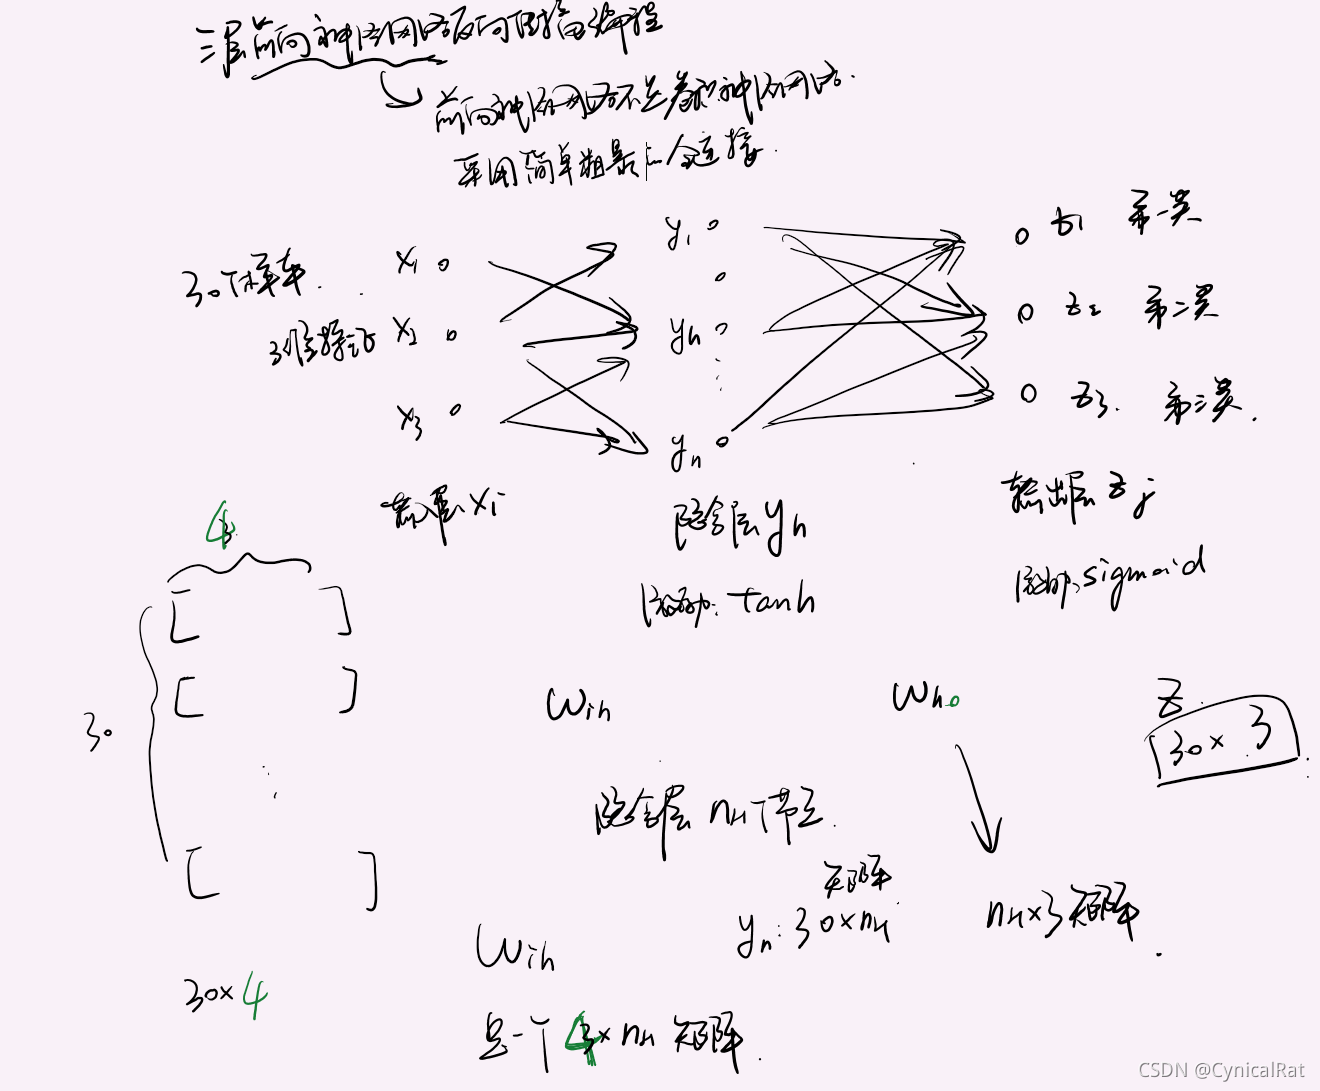 三层前向神经网络反向传播编程
前向神经网络不是卷积神经网络.
采用简单粗暴的全连接.
30个样本.
3维特征
x1
x2
x3
y1
yh
yn
z1 第一类
z2 第二类
z3. 第三类.
输入层 xi
隐含层 yh
输出层 zj
激励: tanh
激励: sigmoid
4
30
Wih
Who
Z
30× 3
隐含层 nH个节点.
矩阵
yn: 30×nH
nH×3 矩阵.
30×4
Wih
是一个 4×nH 矩阵.
CSDN @CynicalRat